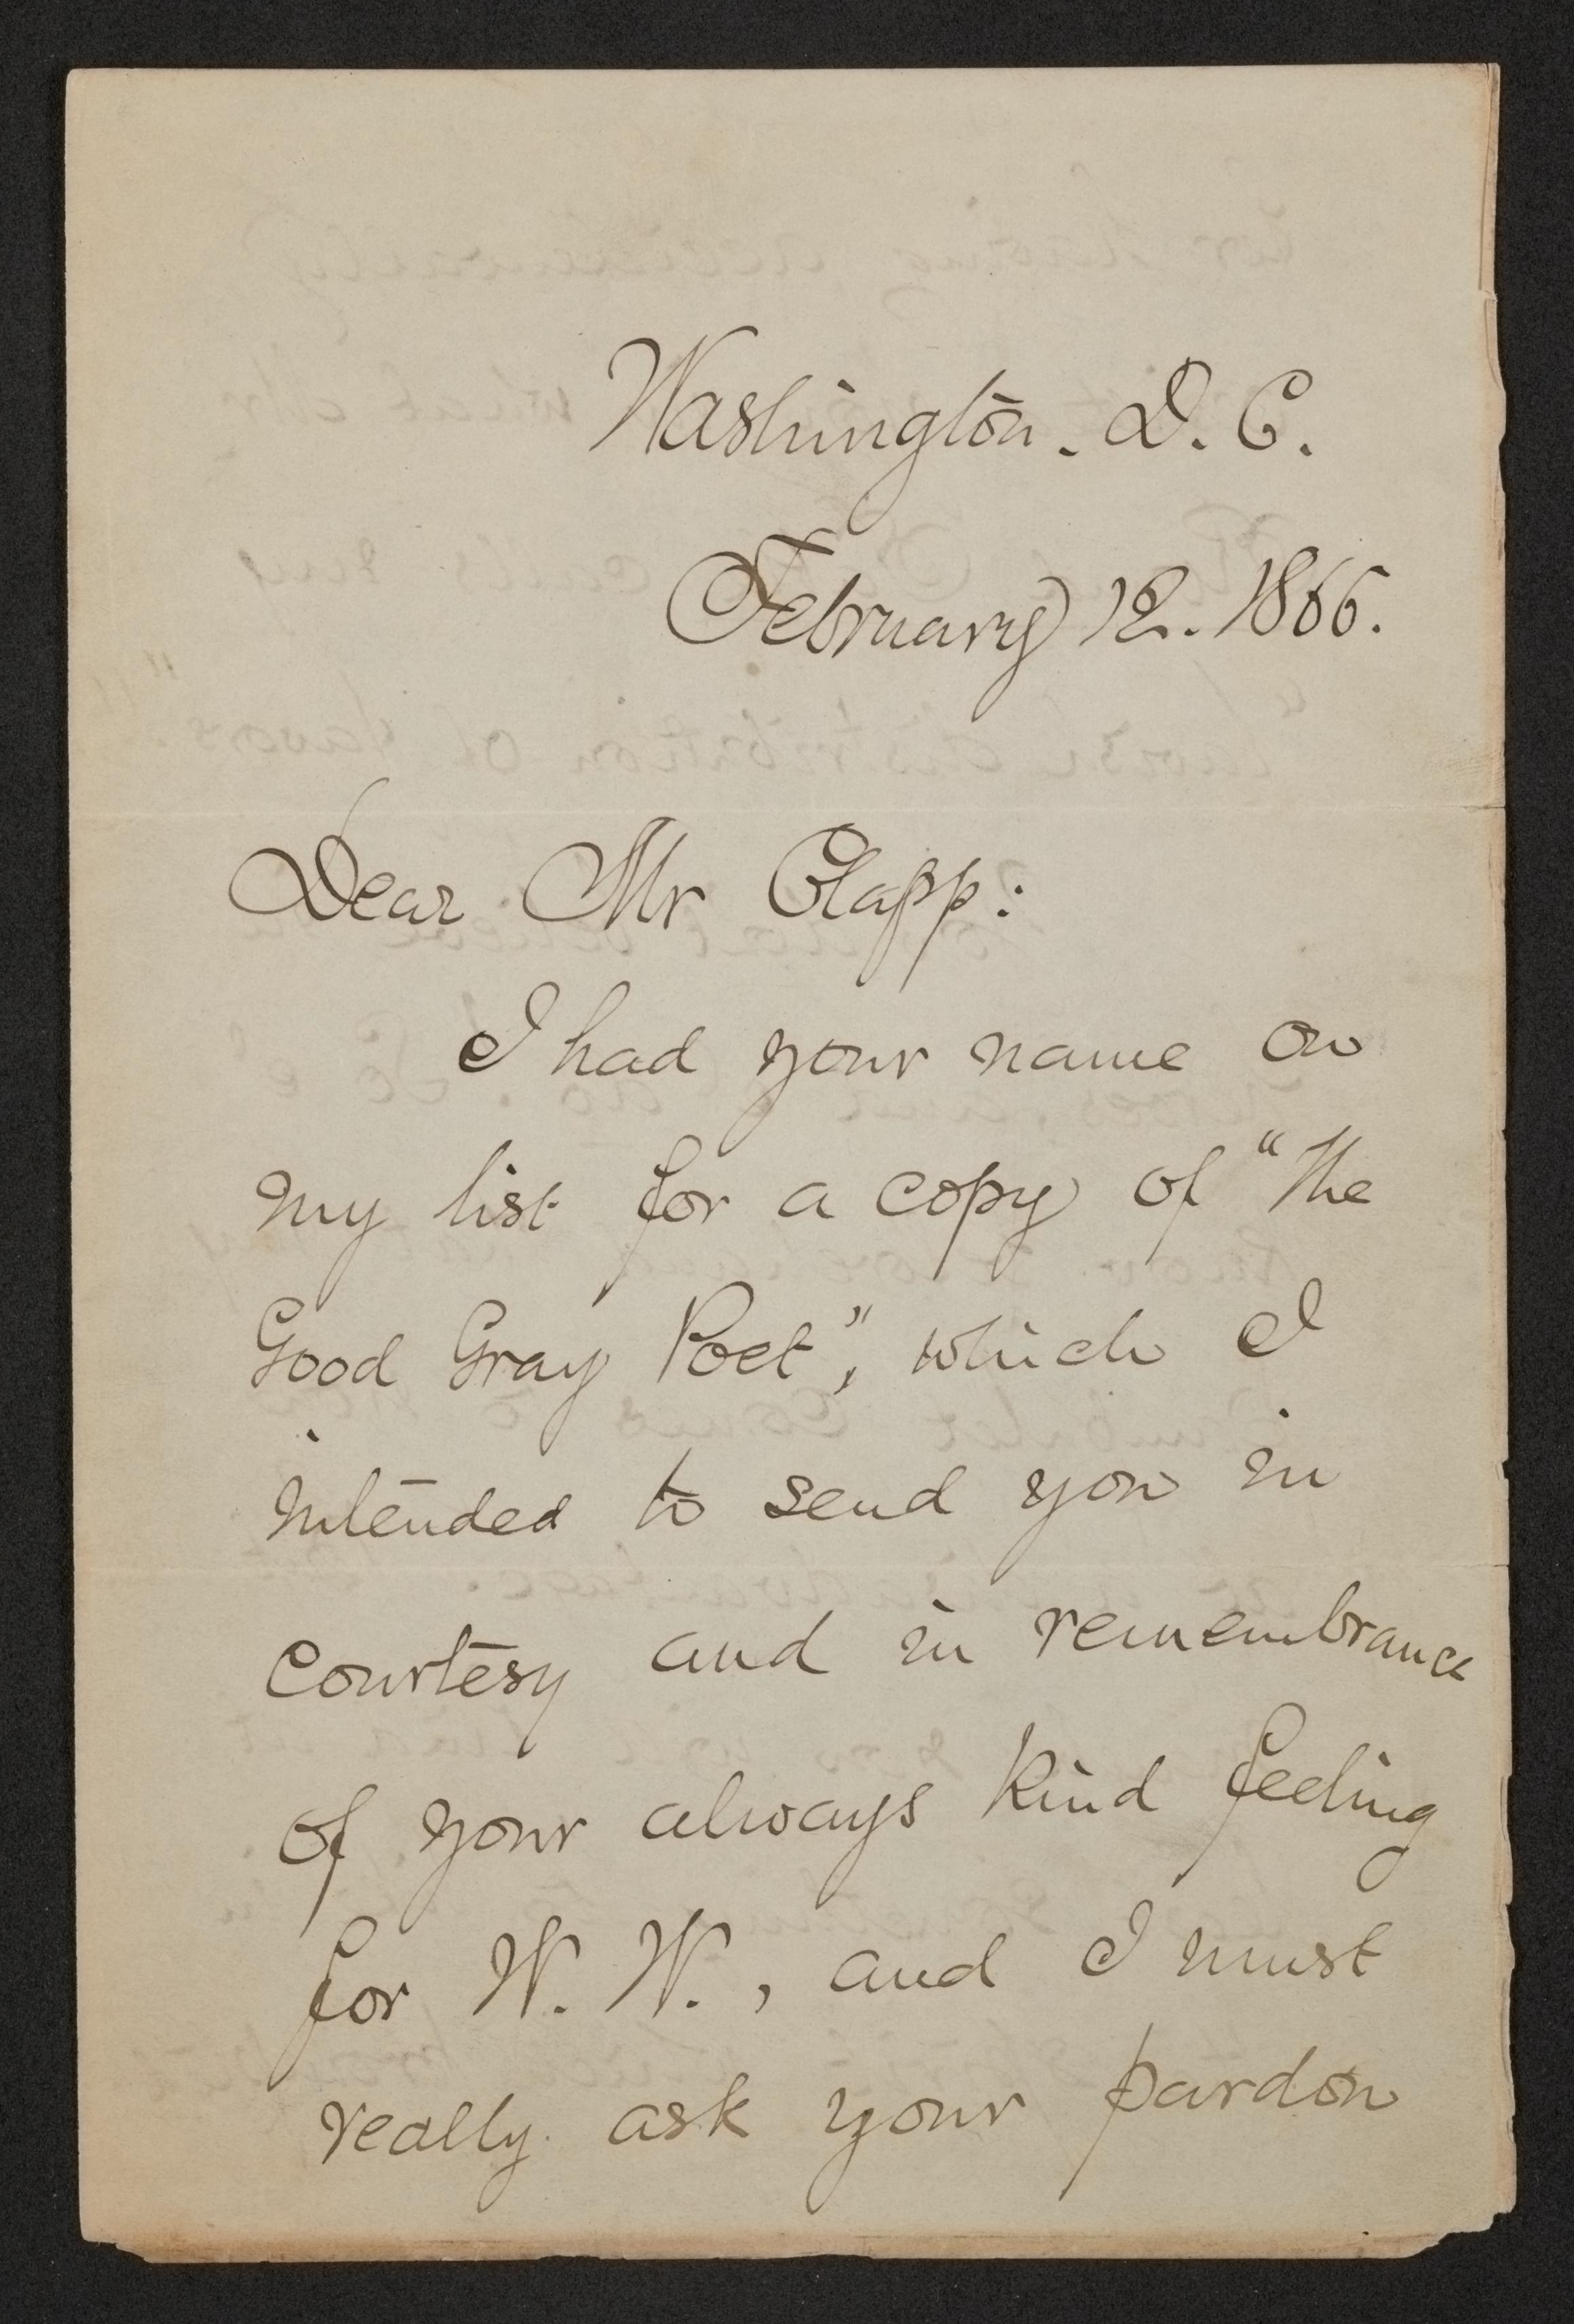 Washington. D. C.
February 12. 1866.
Dear Mr Clapp:
I had your name on
my list for a copy of "The
Good Gray Poet", which I
intended to send you in
courtesy and in remembrance
of your always kind feeling
for W. W., and I must
really ask your pardon